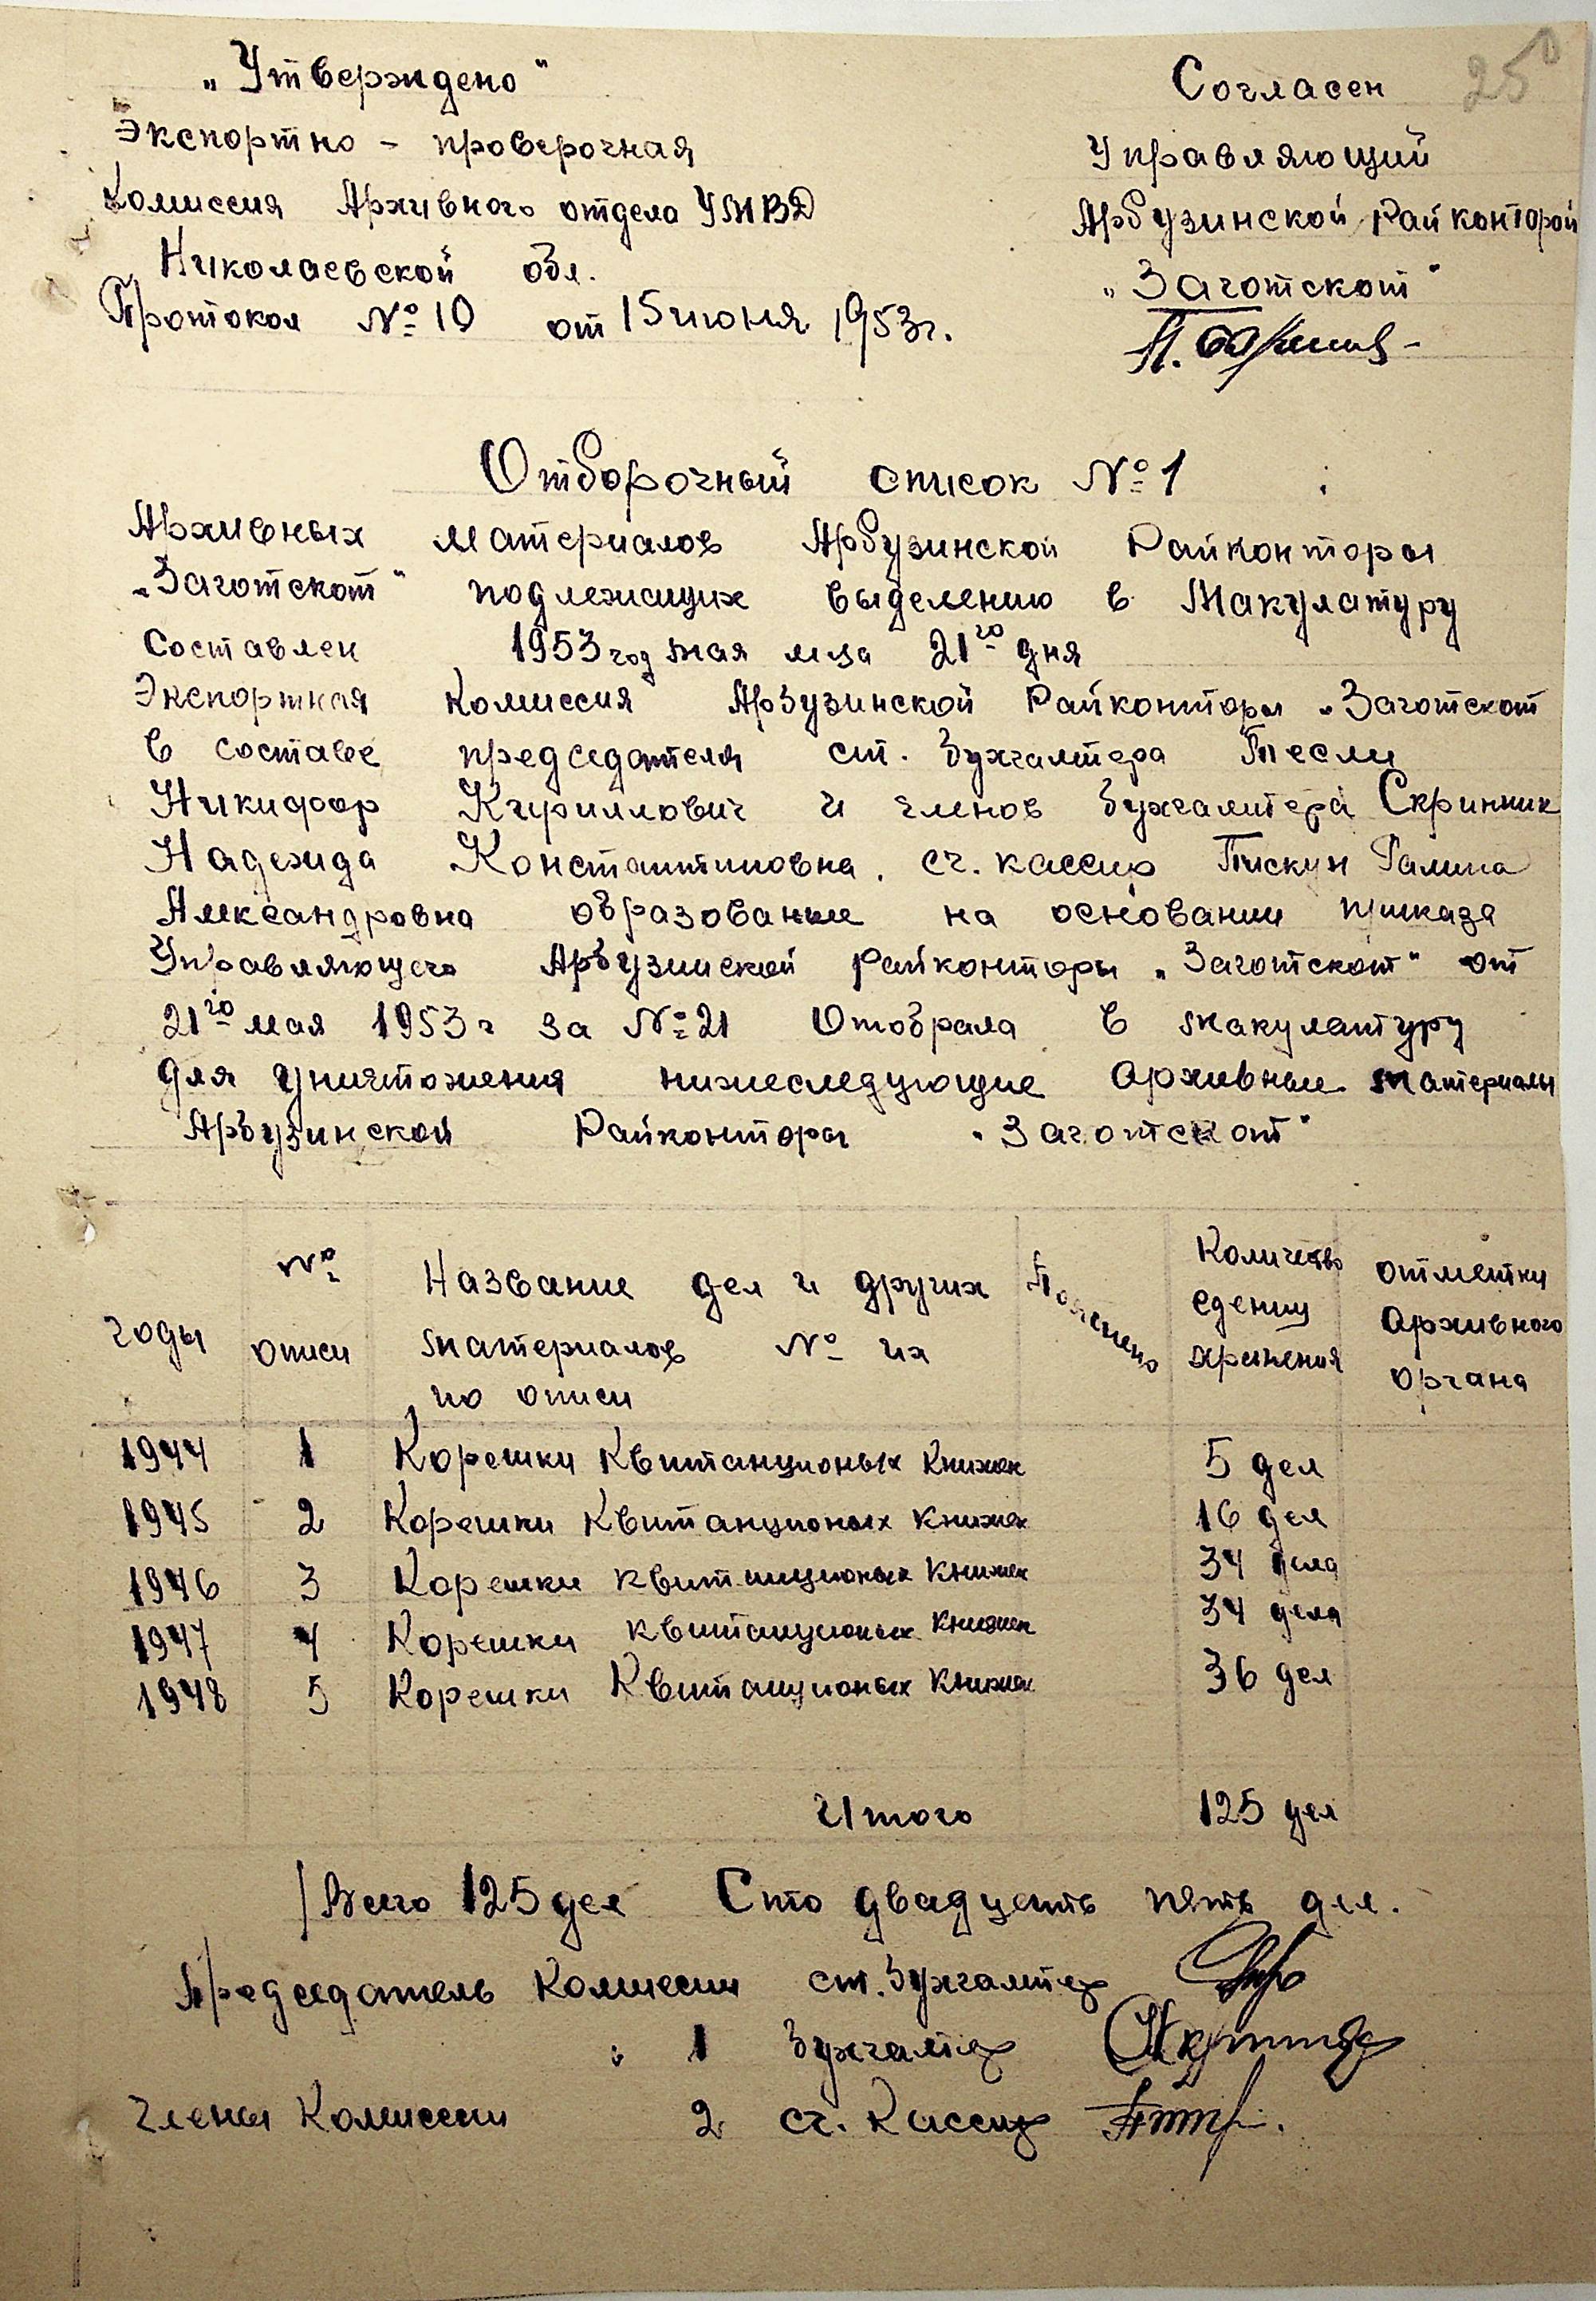 25
„Утверждено“
Экспортно - проверочная
Комиссия Архивного отдела УМВД
Николаевской обл.
Протокол № 10 от 15 июня 1953г.
Согласен
Управляющий
Арбузинской Райконторой
„Заготскот“
Отборочный список № 1
Архивных материалов Арбузинской Райконторы
„Заготскот“ подлежащих выделению в Макулатуру
Составлен 1953 год мая м-ца 21го дня
Экспортная Комиссия Арбузинской Райконторы „Заготскот
в составе председателя ст. бухгалтера Тесли
Никифор Кириллович и членов бухгалтера Скринник
Надежда Константиновна, сч. кассир Пискун Галина
Александровна образование на основании приказа
Управляющего Арбузинской Райконторы „Заготскот“ от
21го мая 1953 г за № 21 Отобрала в макулатуру
для уничтожения нижеследующие Архивные материалы
Арбузинской Райконторы „Заготскот“
Годы
№ описи
Название дел и других
материалов № их
по описи
Количество
едениц
хранения
отметки
Архивного
органа
1944 1 Корешки Квитанционых Книжек 5 дел
1945 2 Корешки Квитанционых Книжек 16 дел
1946 3 Корешки квитанционых Книжек 34 дела
1947 4 Корешки квитанционых Книжек 34 дела
1948 5 Корешки Квитанционых Книжек 36 дел
Итого 125 дел
Всего 125 дел Сто двадцать пять дел.
Председатель Комиссии ст. бухгалтер
1 бухгалтер
Члены Комиссии 2 сч. Кассир